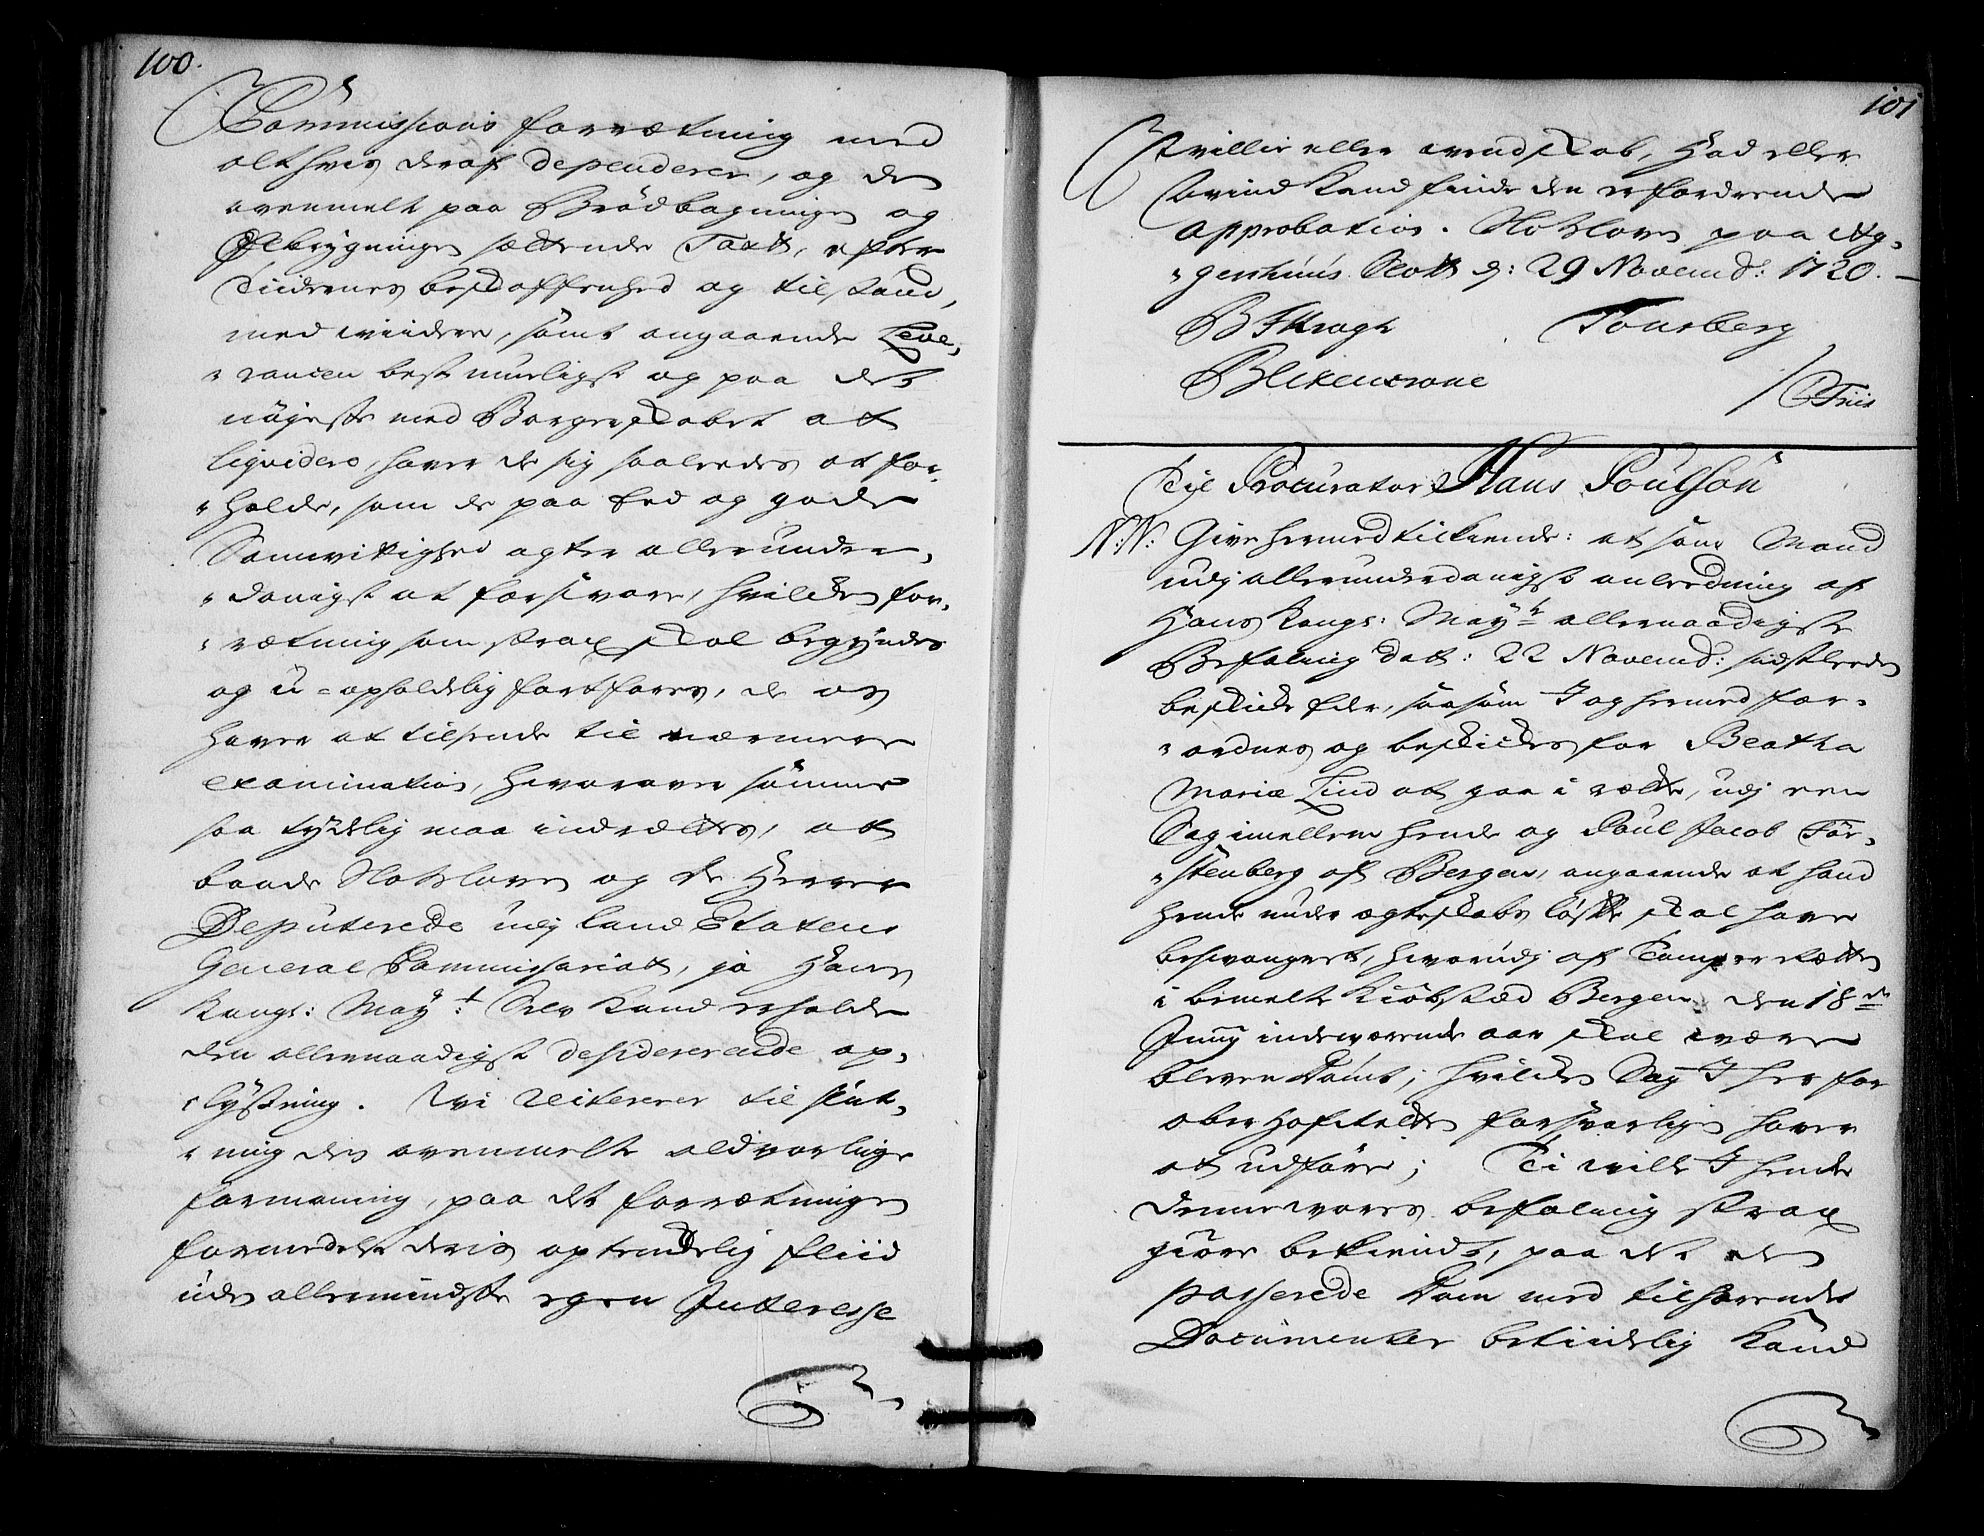 100.
Commissions forrætning med
alt hves deraf dependerer, og den
ovenmelt paa Brødbagningen og
Ølbrygningen settende Taxt, efter
Tiidernes beskaffenhed og tilstand,
med widere, samt angaaende Leve-
rancen best muuligst og paa det
nøjeste med Borgerskabet at
liqvidere, haver de sig saaledes at for-
holde, som de paa Eed og gode
Samvittighed agter allerunder-
danigst at forsvare, hvilken for-
rætning som strax skal begyndes
og u-opholdelig fortfares, de os
haver at tilsende til nærmere
examination, hvorover samme
saa tydelig maa indrættes, at
baade Slotsloven og de Herrer
Deputerede udj Land Etatens
General Commissariat, ja Hans
Kongl: May.t Selv kand erholde
den allernaadigst desidererende op-
lysning. Wi reitererer til slut-
ning den ovenmelte alvorlige
formaning, paa det forrætningen
formedelst deris optendelig fliid
uden allermindste egen Interesse
101
Willie eller wendskab, Had eller
Avind kand finde den erfordrende
approbation. Slotsloven paa Ag-
gershuus Slott d: 29 Novemb: 1720.
B F Krogh Tonsberg
Blixencrone
/ C Friis
Til Procurator Hans Poulsøn
N:N: Give hermed tilkiende: at som Mand
udj allerunderdanigst anledning af
Hans Kongl: May.ts allernaadigste
Befaling dat: 22 Novemb: sidstleeden
beskicket er, saasom I og hermed for-
ordnes og beskickes for Beatha
Maria Lind at gaa i rætte, udj een
Sag imellem hende og Poul Jacob Før-
stenberg af Bergen, angaaende at hand
hende under ægteskabs løfte skal have
besvangret, hvorudj af Tamper Rætten
i bemelte Kiøbstæd Bergen den 18de
Junij indeværende aar skal være
bleven Dømt; hvilken Sag I her for
ober hofretten forsvarlig haver
at udføre; Ti wille I hende
denne vores befaling strax
giøre bekiendt, paa det den
passerede Dom med tilhørende
Documenter betiidelig kand